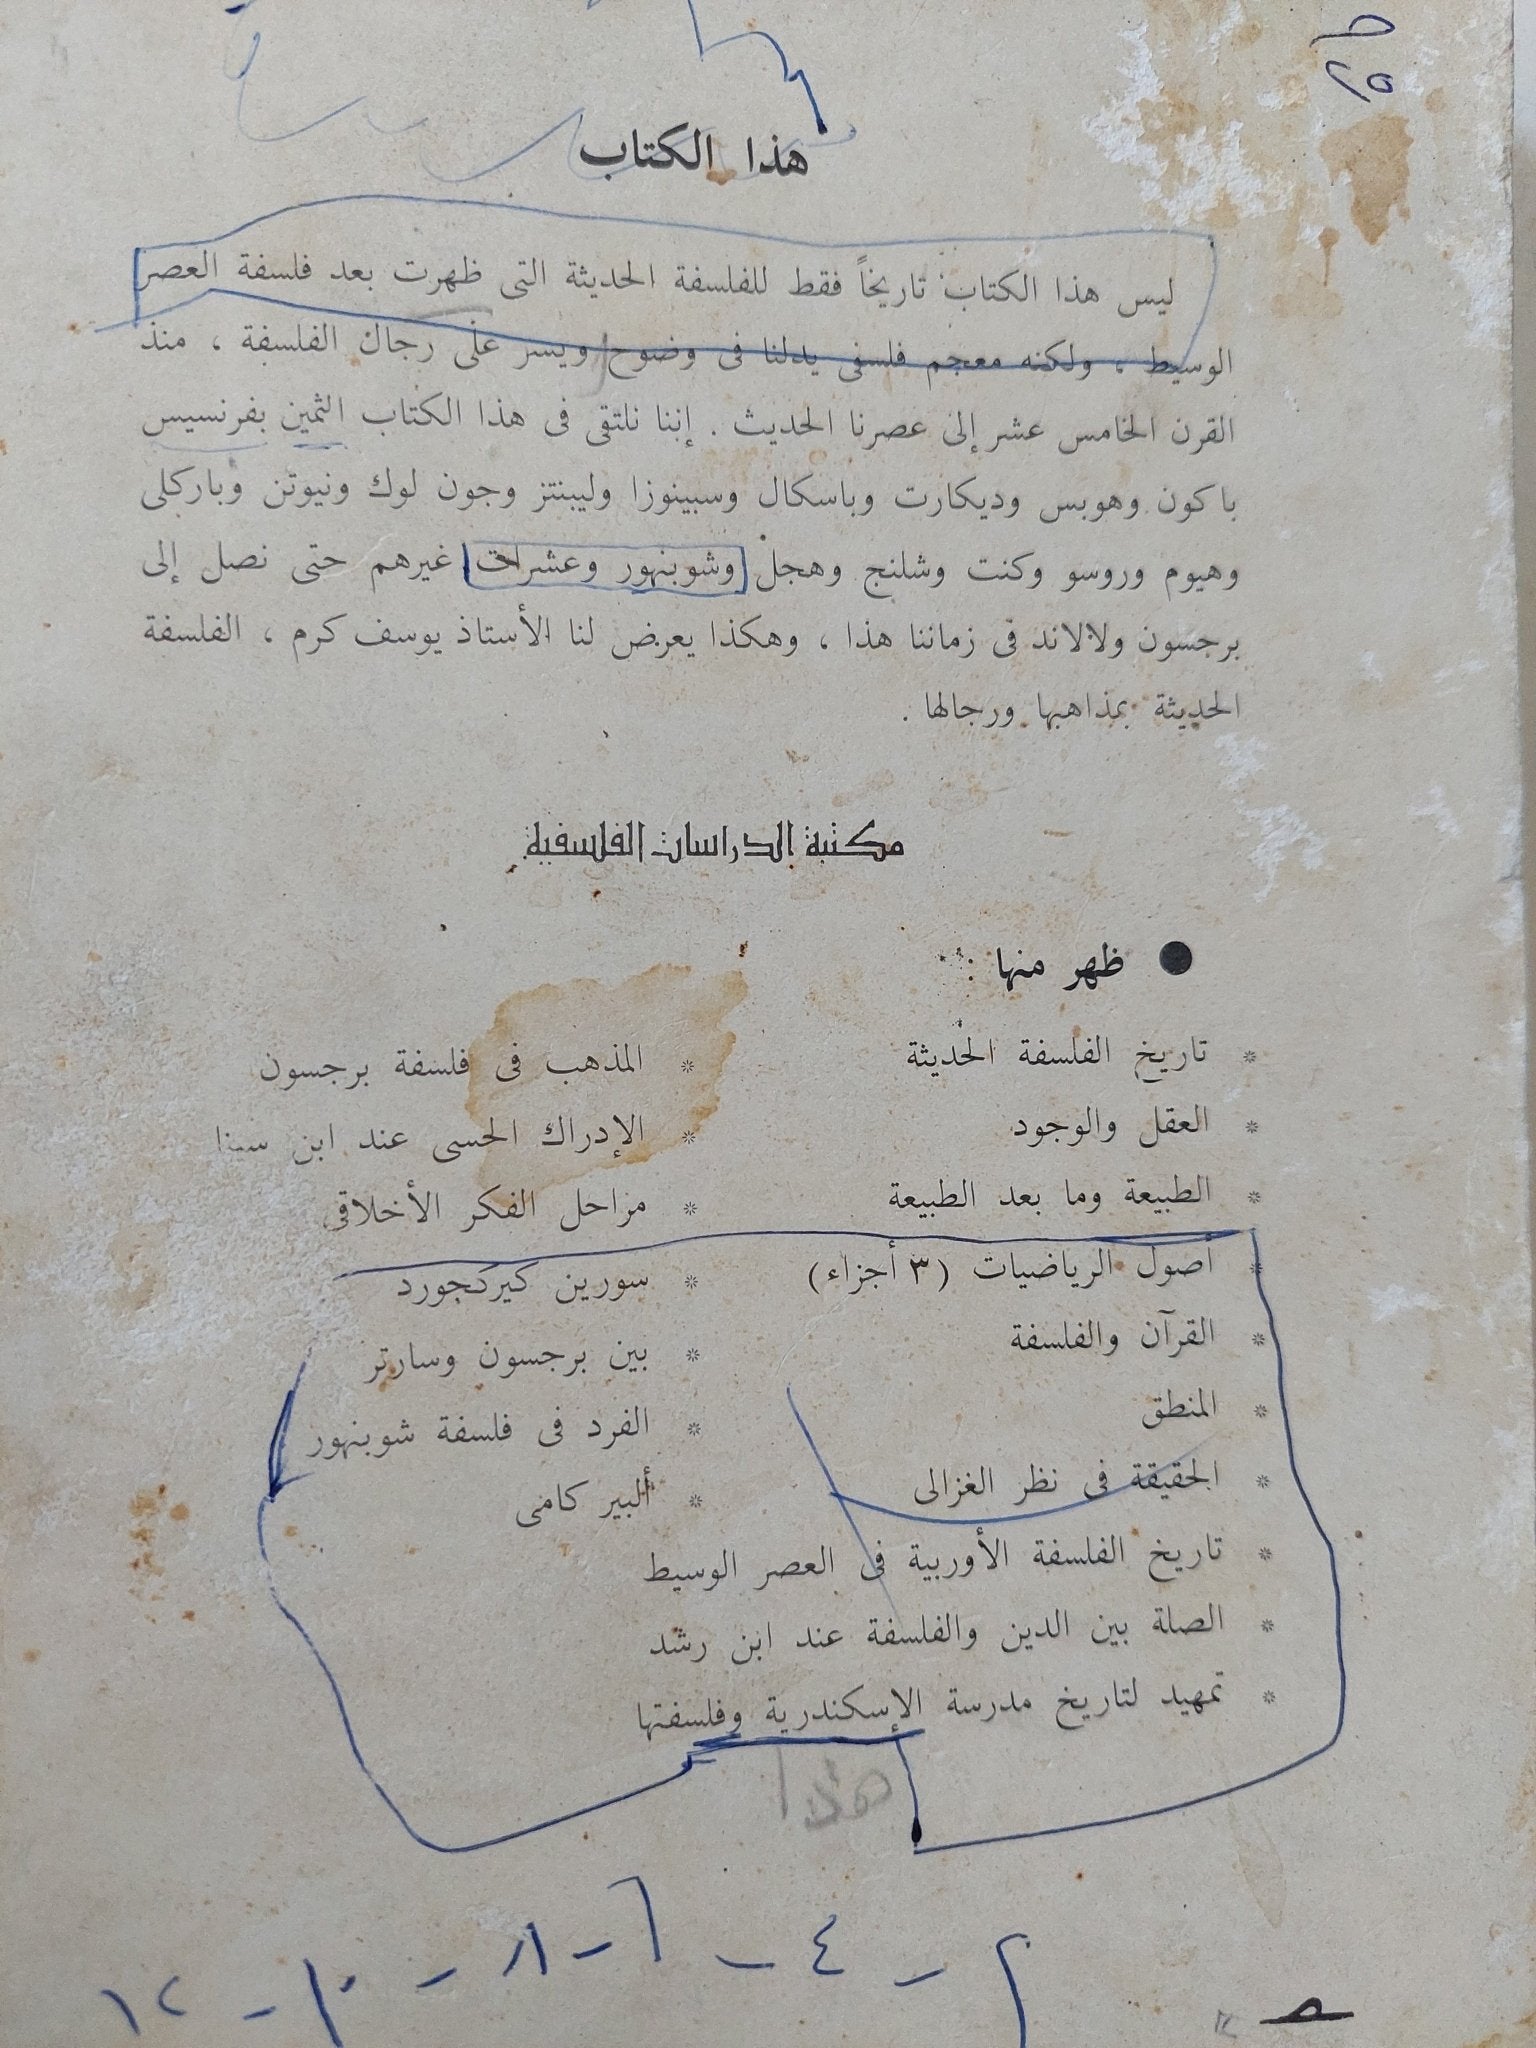 ٢٥
هذا الكتاب
ليس هذا الكتاب تاريخاً فقط للفلسفة الحديثة التى ظهرت بعد فلسفة العصر
الوسيط ، ولكنه معجم فلسفى يدلنا فى وضوح ويسر على رجال الفلسفة ، منذ
القرن الخامس عشر إلى عصرنا الحديث . إننا نلتقى فى هذا الكتاب الثمين بفرنسيس
باكون وهوبس وديكارت وباسكال وسبينوزا وليبنتز وجون لوك ونيوتن وباركلى
وهيوم وروسو وكنت وشلنج وهجل وشوبنهور وعشرات غيرهم حتى نصل إلى
برجسون ولالاند فى زماننا هذا ، وهكذا يعرض لنا الأستاذ يوسف كرم ، الفلسفة
الحديثة بمذاهبها ورجالها .
مكتبة الدراسات الفلسفية
● ظهر منها :
* تاريخ الفلسفة الحديثة
* العقل والوجود
* الطبيعة وما بعد الطبيعة
* أصول الرياضيات (٣ أجزاء)
* القرآن والفلسفة
* المنطق
* الحقيقة فى نظر الغزالى
* تاريخ الفلسفة الأوربية فى العصر الوسيط
* الصلة بين الدين والفلسفة عند ابن رشد
* تمهيد لتاريخ مدرسة الإسكندرية وفلسفتها
* المذهب فى فلسفة برجسون
* الإدراك الحسى عند ابن سينا
* مراحل الفكر الأخلاقى
* سورين كيركجورد
* بين برجسون وسارتر
* الفرد فى فلسفة شوبنهور
* ألبير كامى
هذا
٢ - ٤ - ٦ - ٨ - ١٠ - ١٢